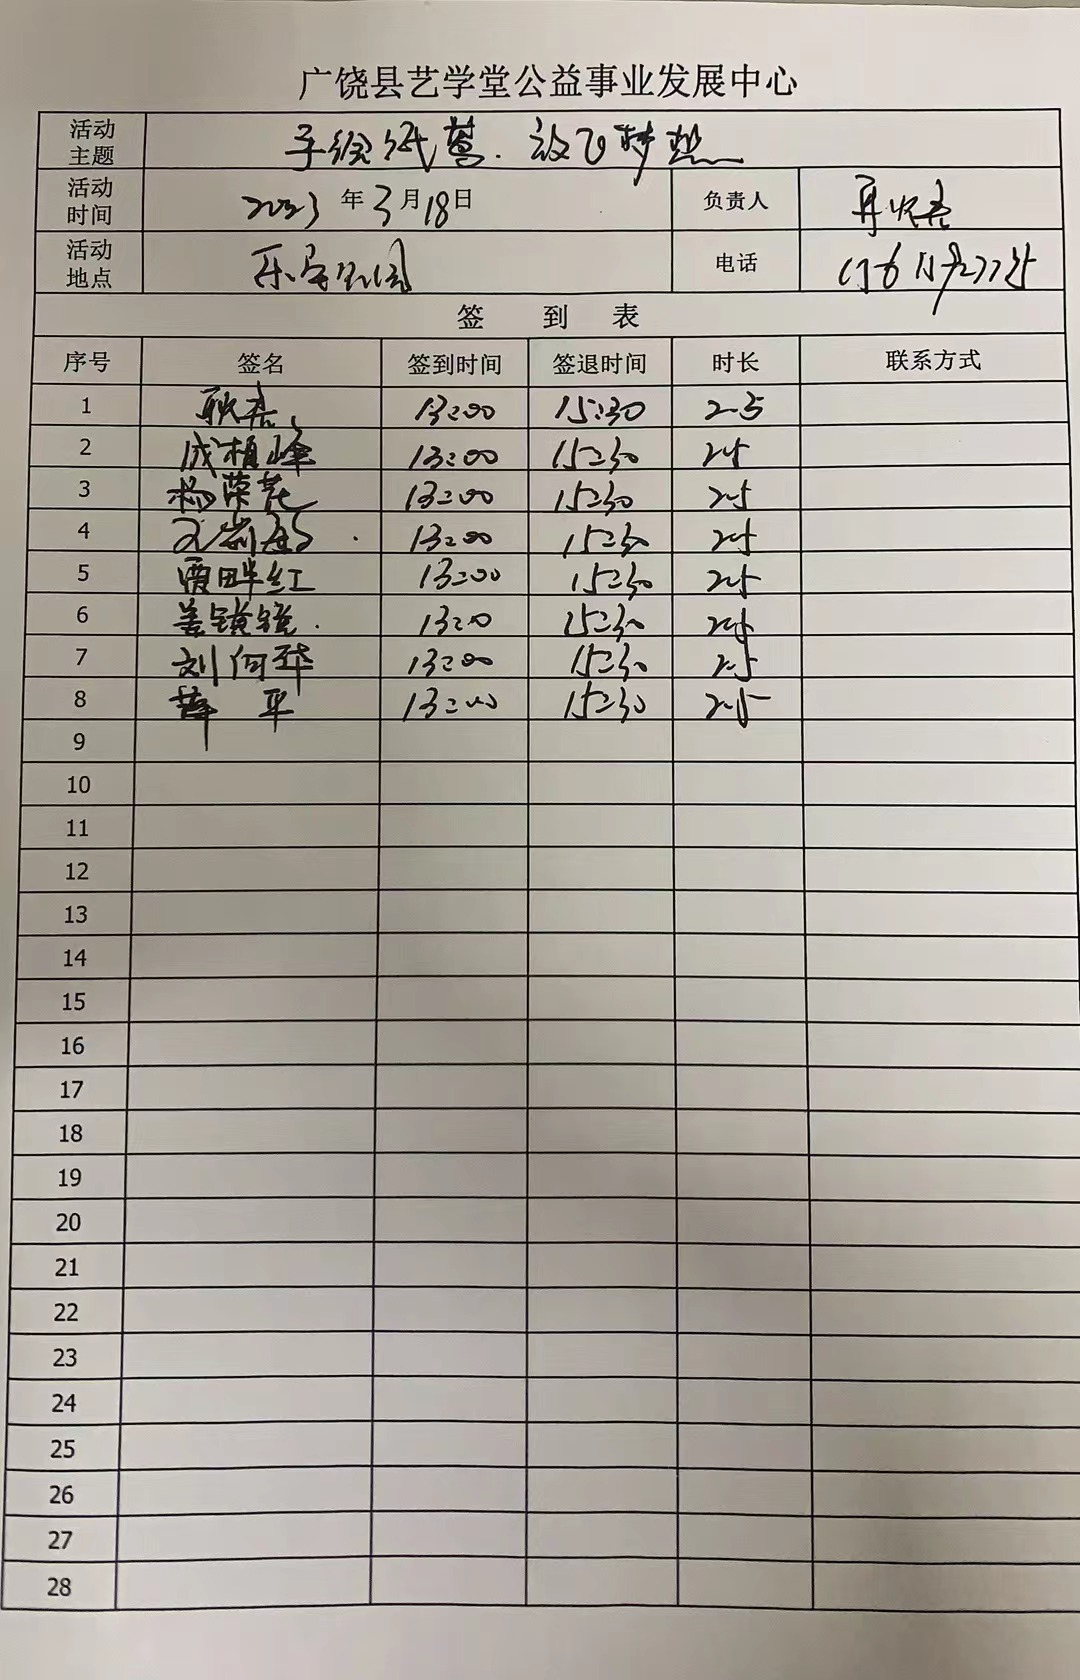 广饶县艺学堂公益事业发展中心
活动主题 手绘纸鸢.放飞梦想
活动时间 2023年3月18日 负责人
活动地点 乐安公园 电话
签 到 表
序号 签名 签到时间 签退时间 时长 联系方式
1 13:00 15:30 2.5
2 成植峰 13:00 15:30 2.5
3 杨荣花 13:00 15:30 2.5
4 13:00 15:30 2.5
5 贾畔红 13:00 15:30 2.5
6 姜镜镜 13:00 15:30 2.5
7 刘向华 13:00 15:30 2.5
8 薛平 13:00 15:30 2.5
9
10
11
12
13
14
15
16
17
18
19
20
21
22
23
24
25
26
27
28